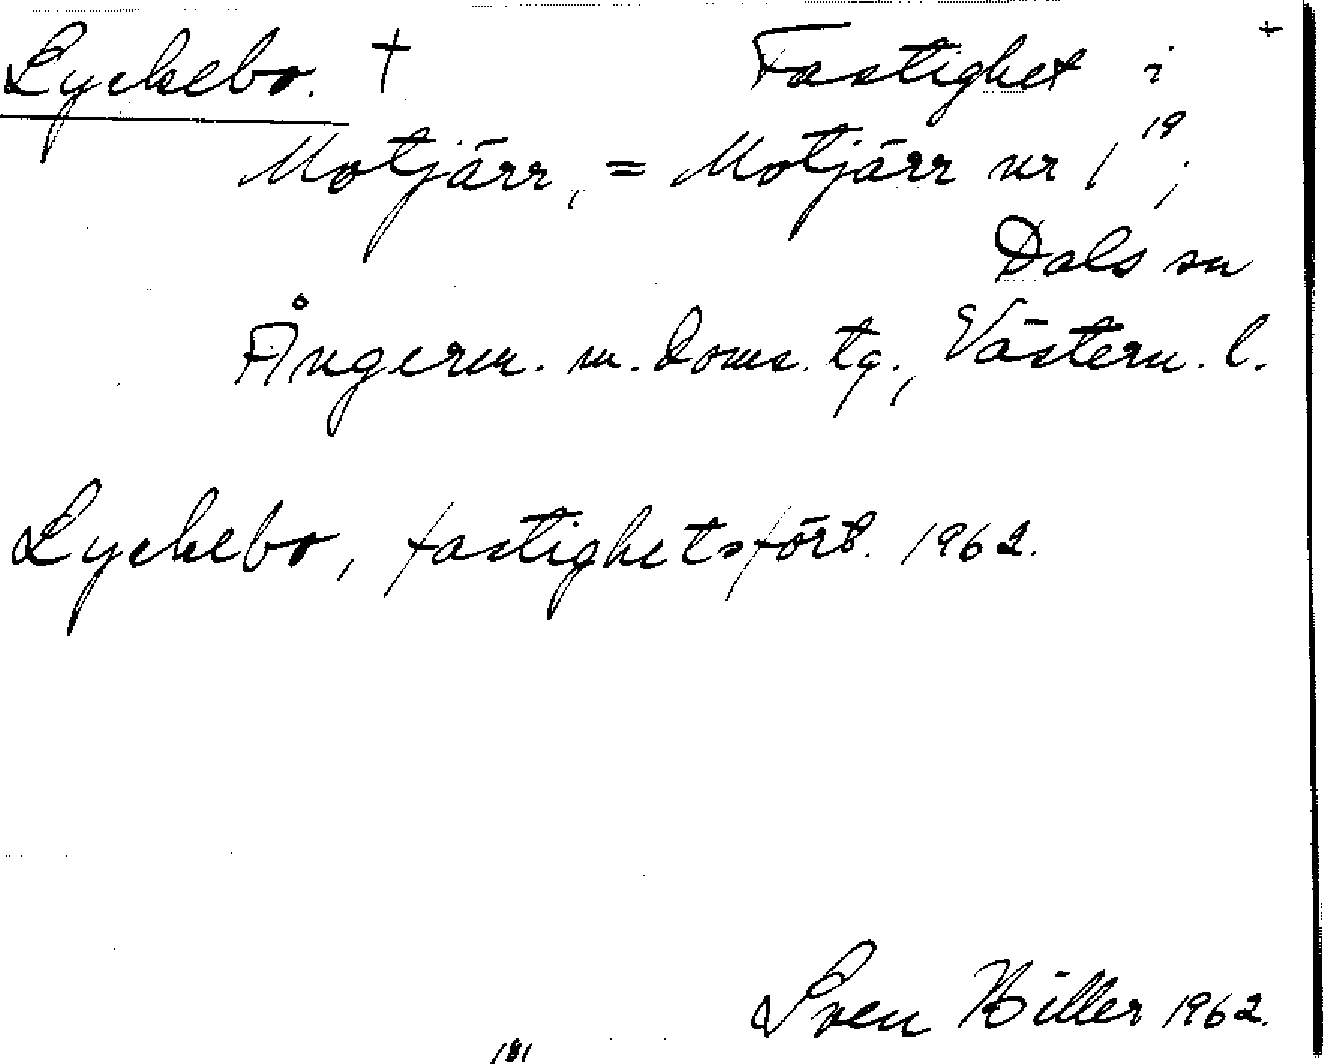 Lyckebo. † Fastighet i +
Motjärr, = Motjärr nr 1¹⁹;
Dals sn
Ångerm. m. doms. tg., Västern. l.
Lyckebo, fastighetsfört. 1962.
Sven Hiller 1962.
181